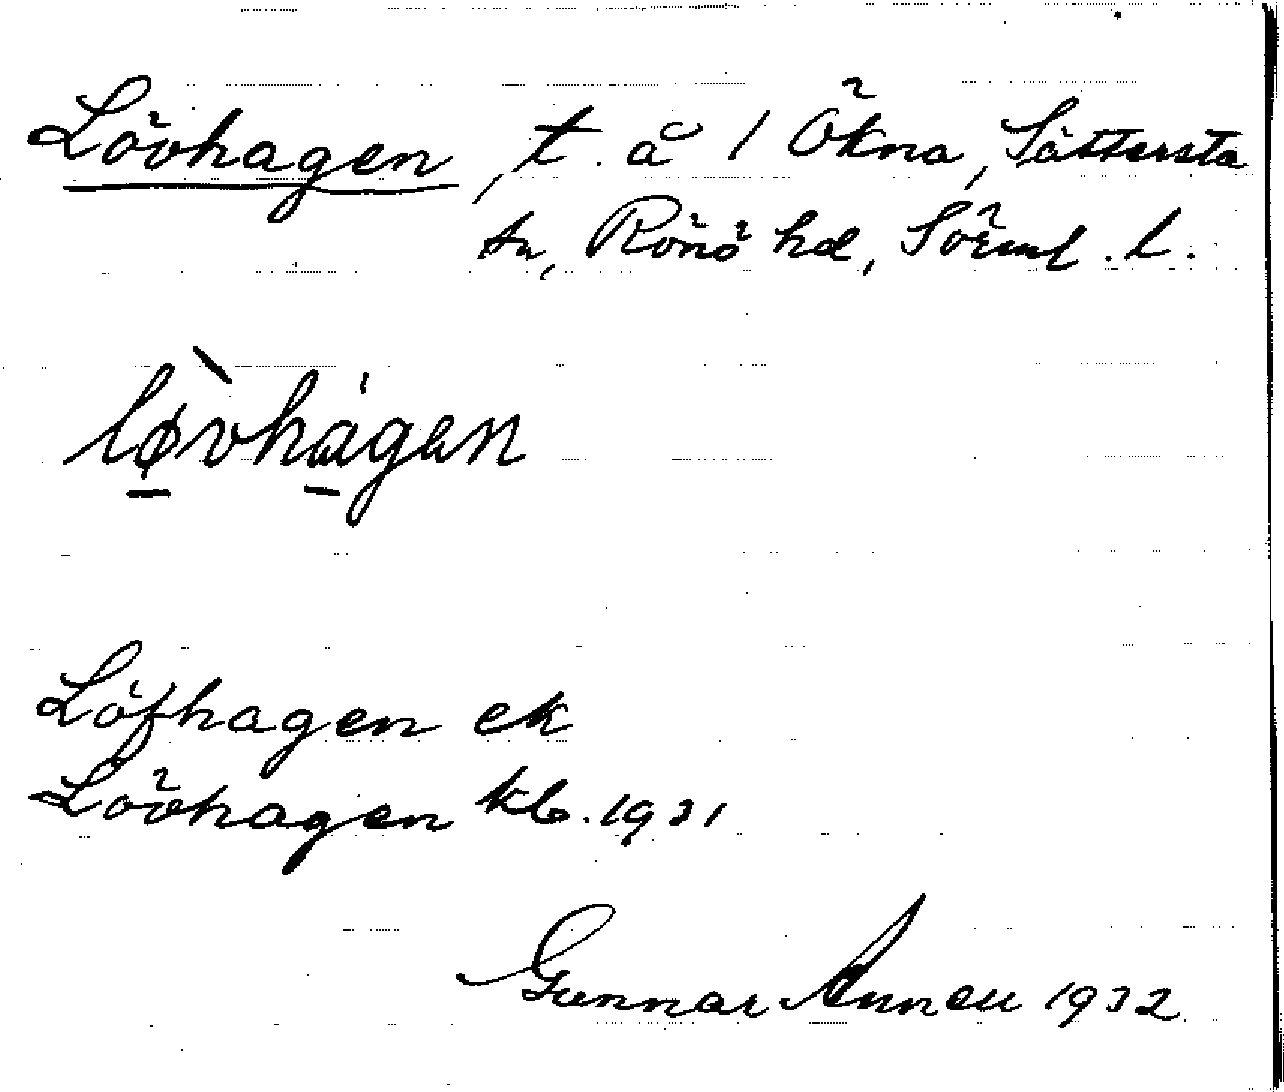 Lövhagen, t. å 1 Ökna, Sättersta
sn, Rönö hd, Sörml. l.
lø̀vhàgen
Löfhagen ek
Lövhagen kb. 1931
Gunnar 1932